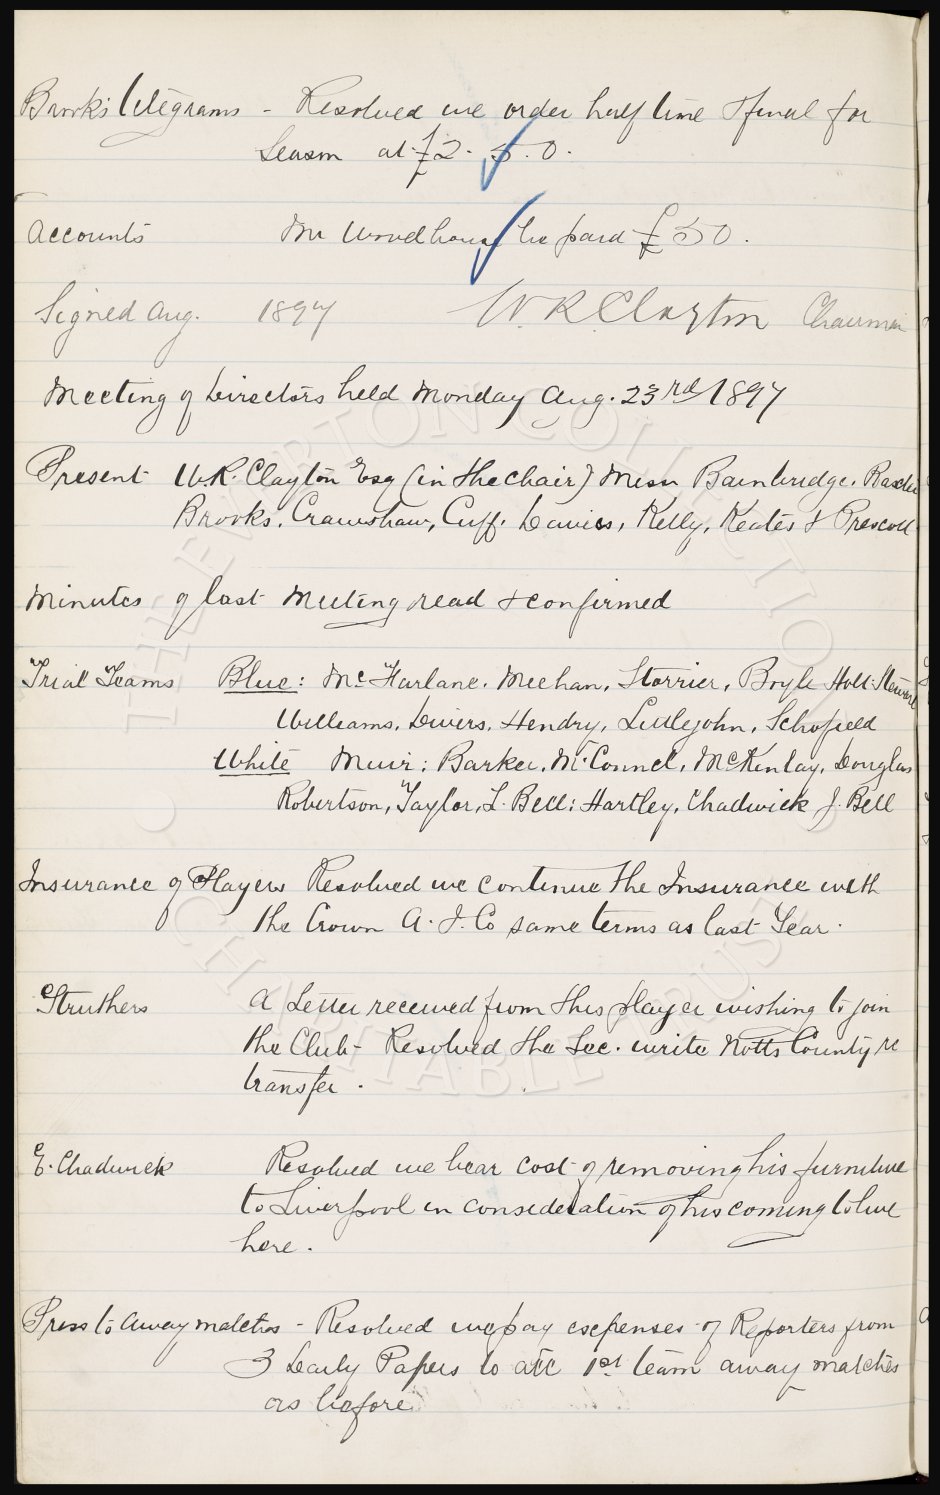 Brooks Telegrams - Resolved we order half time & final for
Season at £2. 5. 0.
Accounts Mr Woodhouse be paid £50.
Signed Aug. 1897 W. R. Clayton Chairman
Meeting of Directors held Monday Aug. 23rd 1897
Present W.R. Clayton Esq (in the chair) Messrs Bainbridge, Baxter
Brooks, Crawshaw, Cuff, Davies, Kelly, Keates & Prescott
Minutes of last Meeting read & confirmed
Trial Teams Blue: McFarlane, Meehan, Storrier, Boyle Holt Stewart
Williams, Divers, Hendry, Littlejohn, Schofield
White Muir: Barker, McConnel, McKinlay, Douglas
Robertson, Taylor, L. Bell: Hartley, Chadwick J. Bell
Insurance of Players Resolved we continue the Insurance with
the Crown A. I. Co same terms as last Year.
Struthers A Letter received from this player wishing to join
the Club - Resolved the Sec. write Notts County re
transfer.
E. Chadwick Resolved we bear cost of removing his furniture
to Liverpool in consideration of his coming to live
here.
Press to away matches - Resolved we pay expenses of Reporters from
3 Daily Papers to all 1st team away matches
as before
THE EVERTON COLLECTION
CHARITABLE TRUST